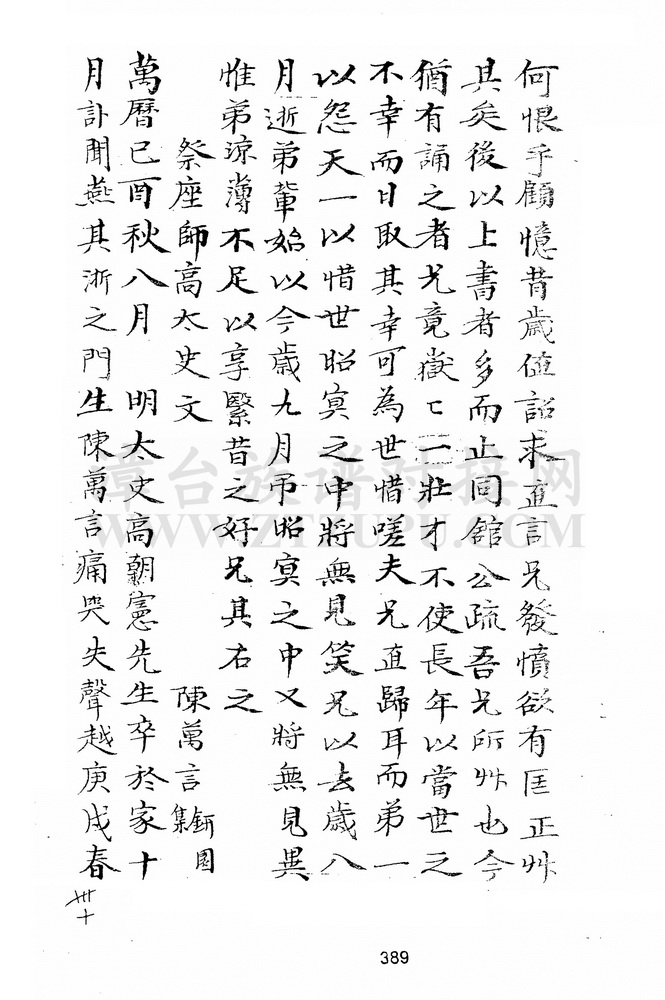 何恨乎顧憶昔歲值詔求直言兄發憤欲有匡正艸
其矣後以上書者多而止同館公疏吾兄所艸也今
猶有誦之者兄竟嶽亡一壯才不使長年以當世之
不幸而日取其幸可為世惜嗟夫兄直歸耳而弟一
以怨天一以惜世昭寞之中將無見笑兄以去歲八
月逝弟輩始以今歲九月吊昭寞之中又將無見異
惟弟涼薄不足以享緊昔之好兄其右之
祭座師高太史文 陳萬言 釿園集
萬曆己酉秋八月 明太史高朝憲先生卒於家十
月訃聞燕其浙之門生陳萬言痛哭失聲越庚戌春
卅十
389
漳台族谱对接网
WWW.ZTZUPU.COM